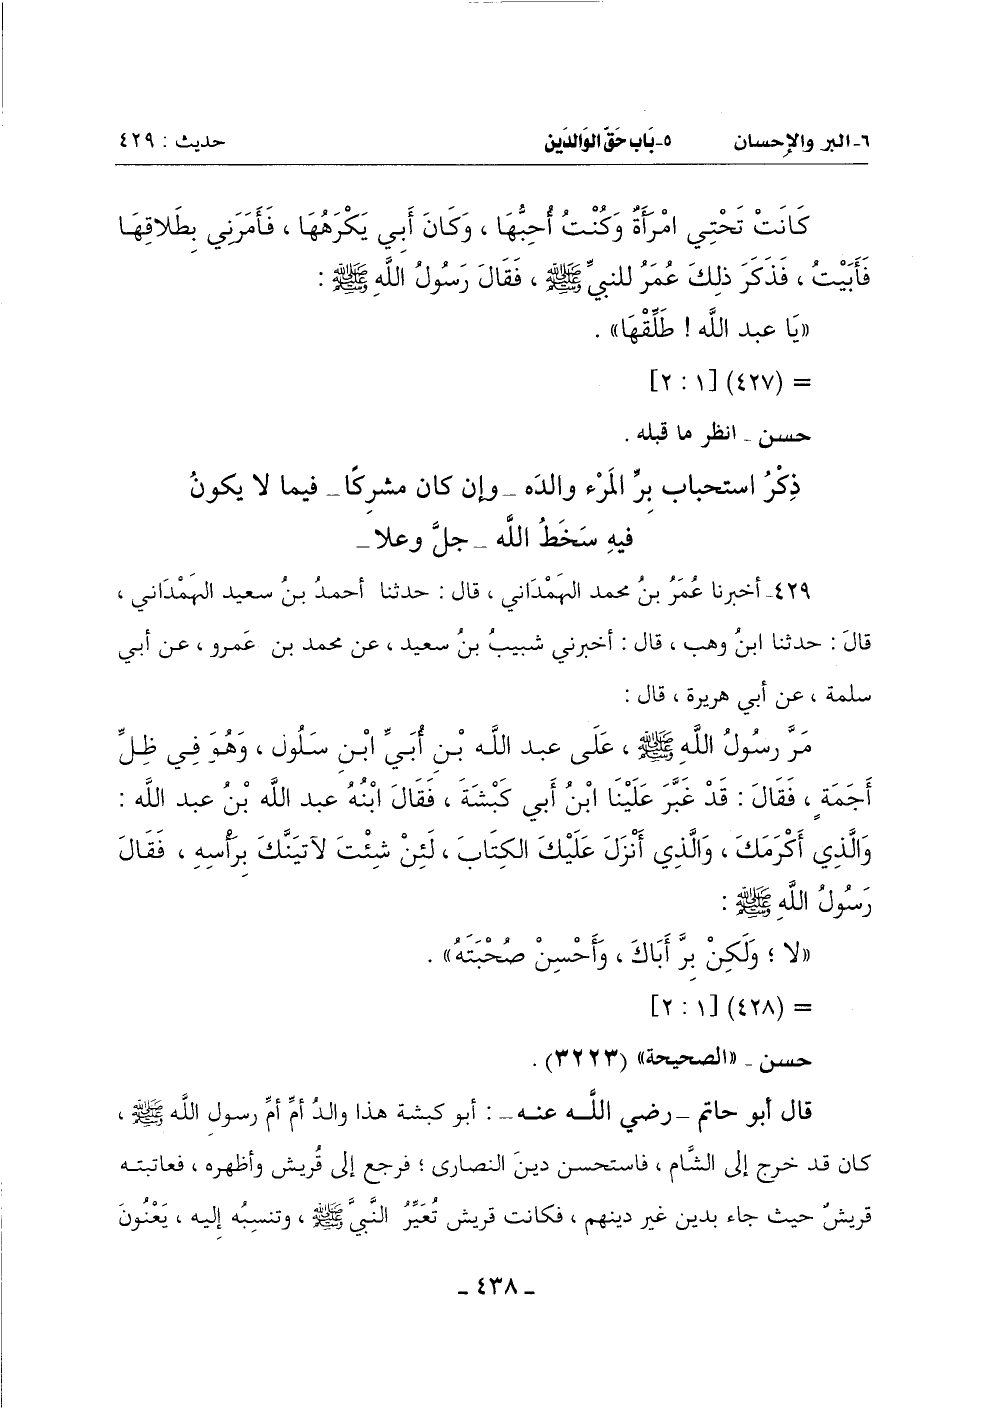 ٦ـ البر والإحسان ٥ـ بَاب حَقِّ الوَالدَين حديث : ٤٢٩
كَانَتْ تَحْتِي امْرَأَةٌ وَكُنْتُ أُحِبُّهَا ، وَكَانَ أَبِي يَكْرَهُهَا ، فَأَمَرَنِي بِطَلاقِهَا
فَأَبَيْتُ ، فَذَكَرَ ذلِكَ عُمَرُ للنبيِّ ﷺ ، فَقَالَ رَسُولُ اللَّهِ ﷺ :
«يَا عبد اللَّه ! طَلِّقْهَا» .
= (٤٢٧) [١ : ٢]
حسن ـ انظر ما قبله .
ذِكْرُ استحباب بِرِّ المَرْء والدَه ـ وإن كان مشركًا ـ فيما لا يكونُ
فيهِ سَخَطُ اللَّه ـ جلَّ وعلا ـ
٤٢٩ـ أخبرنا عُمَرُ بنُ محمد الهَمْدَاني ، قال : حدثنا أحمدُ بنُ سعيد الهَمْدَاني ،
قالَ : حدثنا ابنُ وهب ، قال : أخبرني شبيبُ بنُ سعيد ، عن محمد بن عَمرو ، عن أبي
سلمة ، عن أبي هريرة ، قال :
مَرَّ رسولُ اللَّهِ ﷺ ، عَلَى عبد اللَّه بْنِ أُبَيِّ ابْنِ سَلُول ، وَهُوَ فِي ظِلِّ
أَجَمَةٍ ، فَقَالَ : قَدْ غَبَّرَ عَلَيْنَا ابْنُ أبي كَبْشَةَ ، فَقَالَ ابْنُهُ عبد اللَّه بْنُ عبد اللَّه :
وَالَّذِي أَكْرَمَكَ ، وَالَّذِي أَنْزَلَ عَلَيْكَ الكِتَابَ ، لَئِنْ شِئْتَ لآتيَنَّكَ بِرَأْسِهِ ، فَقَالَ
رَسُولُ اللَّهِ ﷺ :
«لا ؛ وَلَكِنْ بِرَّ أَبَاكَ ، وَأَحْسِنْ صُحْبَتَهُ» .
= (٤٢٨) [١ : ٢]
حسن ـ «الصحيحة» (٣٢٢٣) .
قال أبو حاتم ـ رضي اللَّه عنه ـ : أبو كبشة هذا والدُ أمِّ أمِّ رسول اللَّه ﷺ ،
كان قد خرج إلى الشَّام ، فاستحسن دينَ النصارى ؛ فرجع إلى قُريش وأظهره ، فعاتبته
قريشٌ حيث جاء بدين غير دينهم ، فكانت قريش تُعَيِّرُ النَّبيَّ ﷺ ، وتنسبُه إليه ، يَعْنُونَ
ـ ٤٣٨ ـ